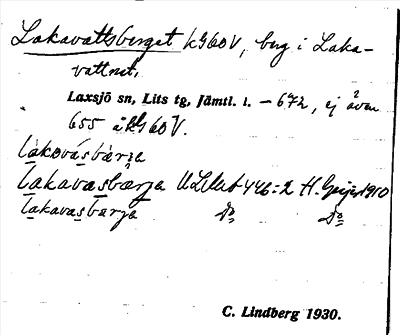 Lakavattsberget kG60V, berg i Laka-
vattnet.
Laxsjö sn, Lits tg, Jämtl. l. – 672, ej även
655 å kG60V.
làkovásbàrja
lakavasbærja ULMA 446:2 H. Geijer 1910
lakavasbærja Do Do
C. Lindberg 1930.